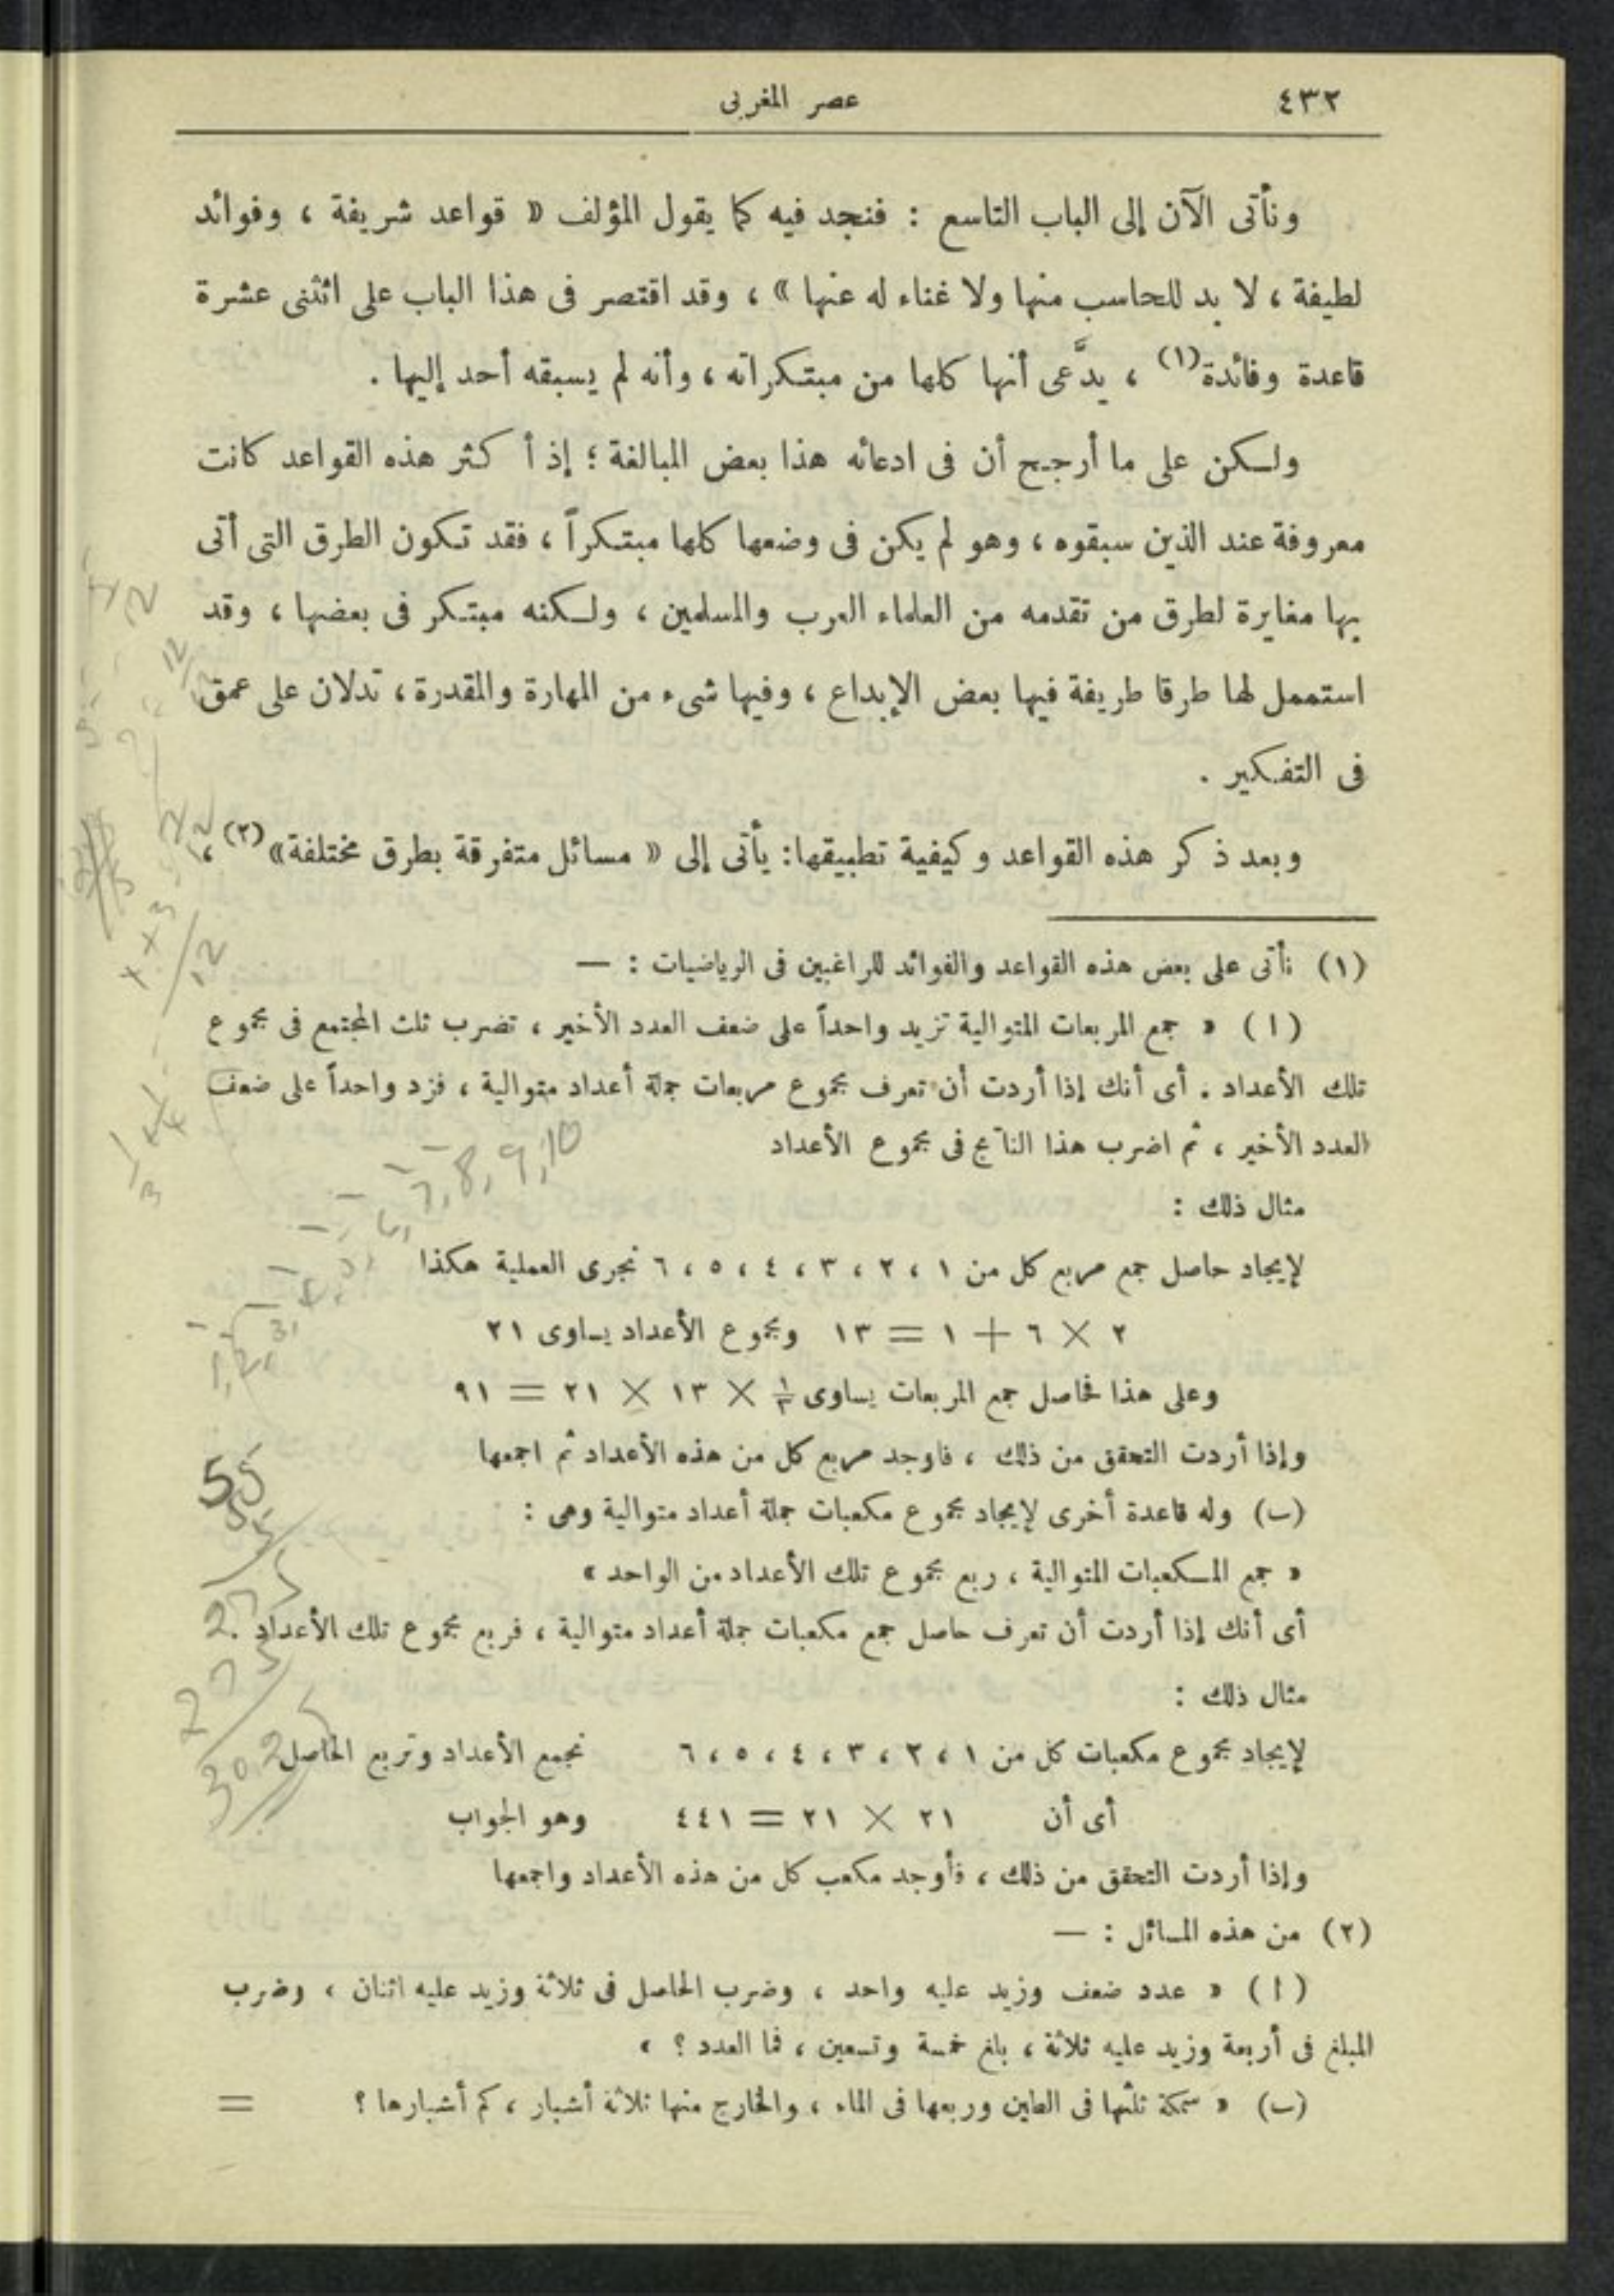 ٤٣٢ عصر المغربى
ونأتى الآن إلى الباب التاسع : فنجد فيه كما يقول المؤلف « قواعد شريفة ، وفوائد
لطيفة ، لا بد للحاسب منها ولا غناء له عنها » ، وقد اقتصر فى هذا الباب على اثنى عشرة
قاعدة وفائدة(١) ، يدَّعى أنها كلها من مبتكراته ، وأنه لم يسبقه أحد إليها .
ولكن على ما أرجح أن فى ادعائه هذا بعض المبالغة ؛ إذ أكثر هذه القواعد كانت
معروفة عند الذين سبقوه ، وهو لم يكن فى وضعها كلها مبتكراً ، فقد تكون الطرق التى أتى
بها مغايرة لطرق من تقدمه من العلماء العرب والمسلمين ، ولكنه مبتكر فى بعضها ، وقد
استعمل لها طرقا طريفة فيها بعض الإبداع ، وفيها شىء من المهارة والمقدرة ، تدلان على عمق
فى التفكير .
وبعد ذكر هذه القواعد وكيفية تطبيقها : يأتى إلى « مسائل متفرقة بطرق مختلفة »(٢) ،
(١) نأتى على بعض هذه القواعد والفوائد للراغبين فى الرياضيات : —
(ا) « جمع المربعات المتوالية تزيد واحداً على ضعف العدد الأخير ، تضرب ثلث المجتمع فى مجموع
تلك الأعداد . أى أنك إذا أردت أن تعرف مجموع مربعات جملة أعداد متوالية ، فزد واحداً على ضعف
العدد الأخير ، ثم اضرب هذا الناتج فى مجموع الأعداد
7, 8, 9, 10
مثال ذلك :
لإيجاد حاصل جمع مربع كل من ١ ، ٢ ، ٣ ، ٤ ، ٥ ، ٦ نجرى العملية هكذا
٢ × ٦ + ١ = ١٣ ومجموع الأعداد يساوى ٢١
وعلى هذا فحاصل جمع المربعات يساوى ١/٣ × ١٣ × ٢١ = ٩١
وإذا أردت التحقق من ذلك ، فاوجد مربع كل من هذه الأعداد ثم اجمعها
55
(ب) وله قاعدة أخرى لإيجاد مجموع مكعبات جملة أعداد متوالية وهى :
« جمع المكعبات المتوالية ، ربع مجموع تلك الأعداد من الواحد »
275
أى أنك إذا أردت أن تعرف حاصل جمع مكعبات جملة أعداد متوالية ، فربع مجموع تلك الأعداد .
مثال ذلك :
275
لإيجاد مجموع مكعبات كل من ١ ، ٢ ، ٣ ، ٤ ، ٥ ، ٦ نجمع الأعداد وتربع الحاصل
3025
أى أن ٢١ × ٢١ = ٤٤١ وهو الجواب
وإذا أردت التحقق من ذلك ، فأوجد مكعب كل من هذه الأعداد واجمعها
(٢) من هذه المسائل : —
(ا) « عدد ضعف وزيد عليه واحد ، وضرب الحاصل فى ثلاثة وزيد عليه اثنان ، وضرب
المبلغ فى أربعة وزيد عليه ثلاثة ، بلغ خمسة وتسعين ، فما العدد ؟ »
(ب) « سمكة ثلثها فى الطين وربعها فى الماء ، والخارج منها ثلاثة أشبار ، كم أشبارها ؟ =